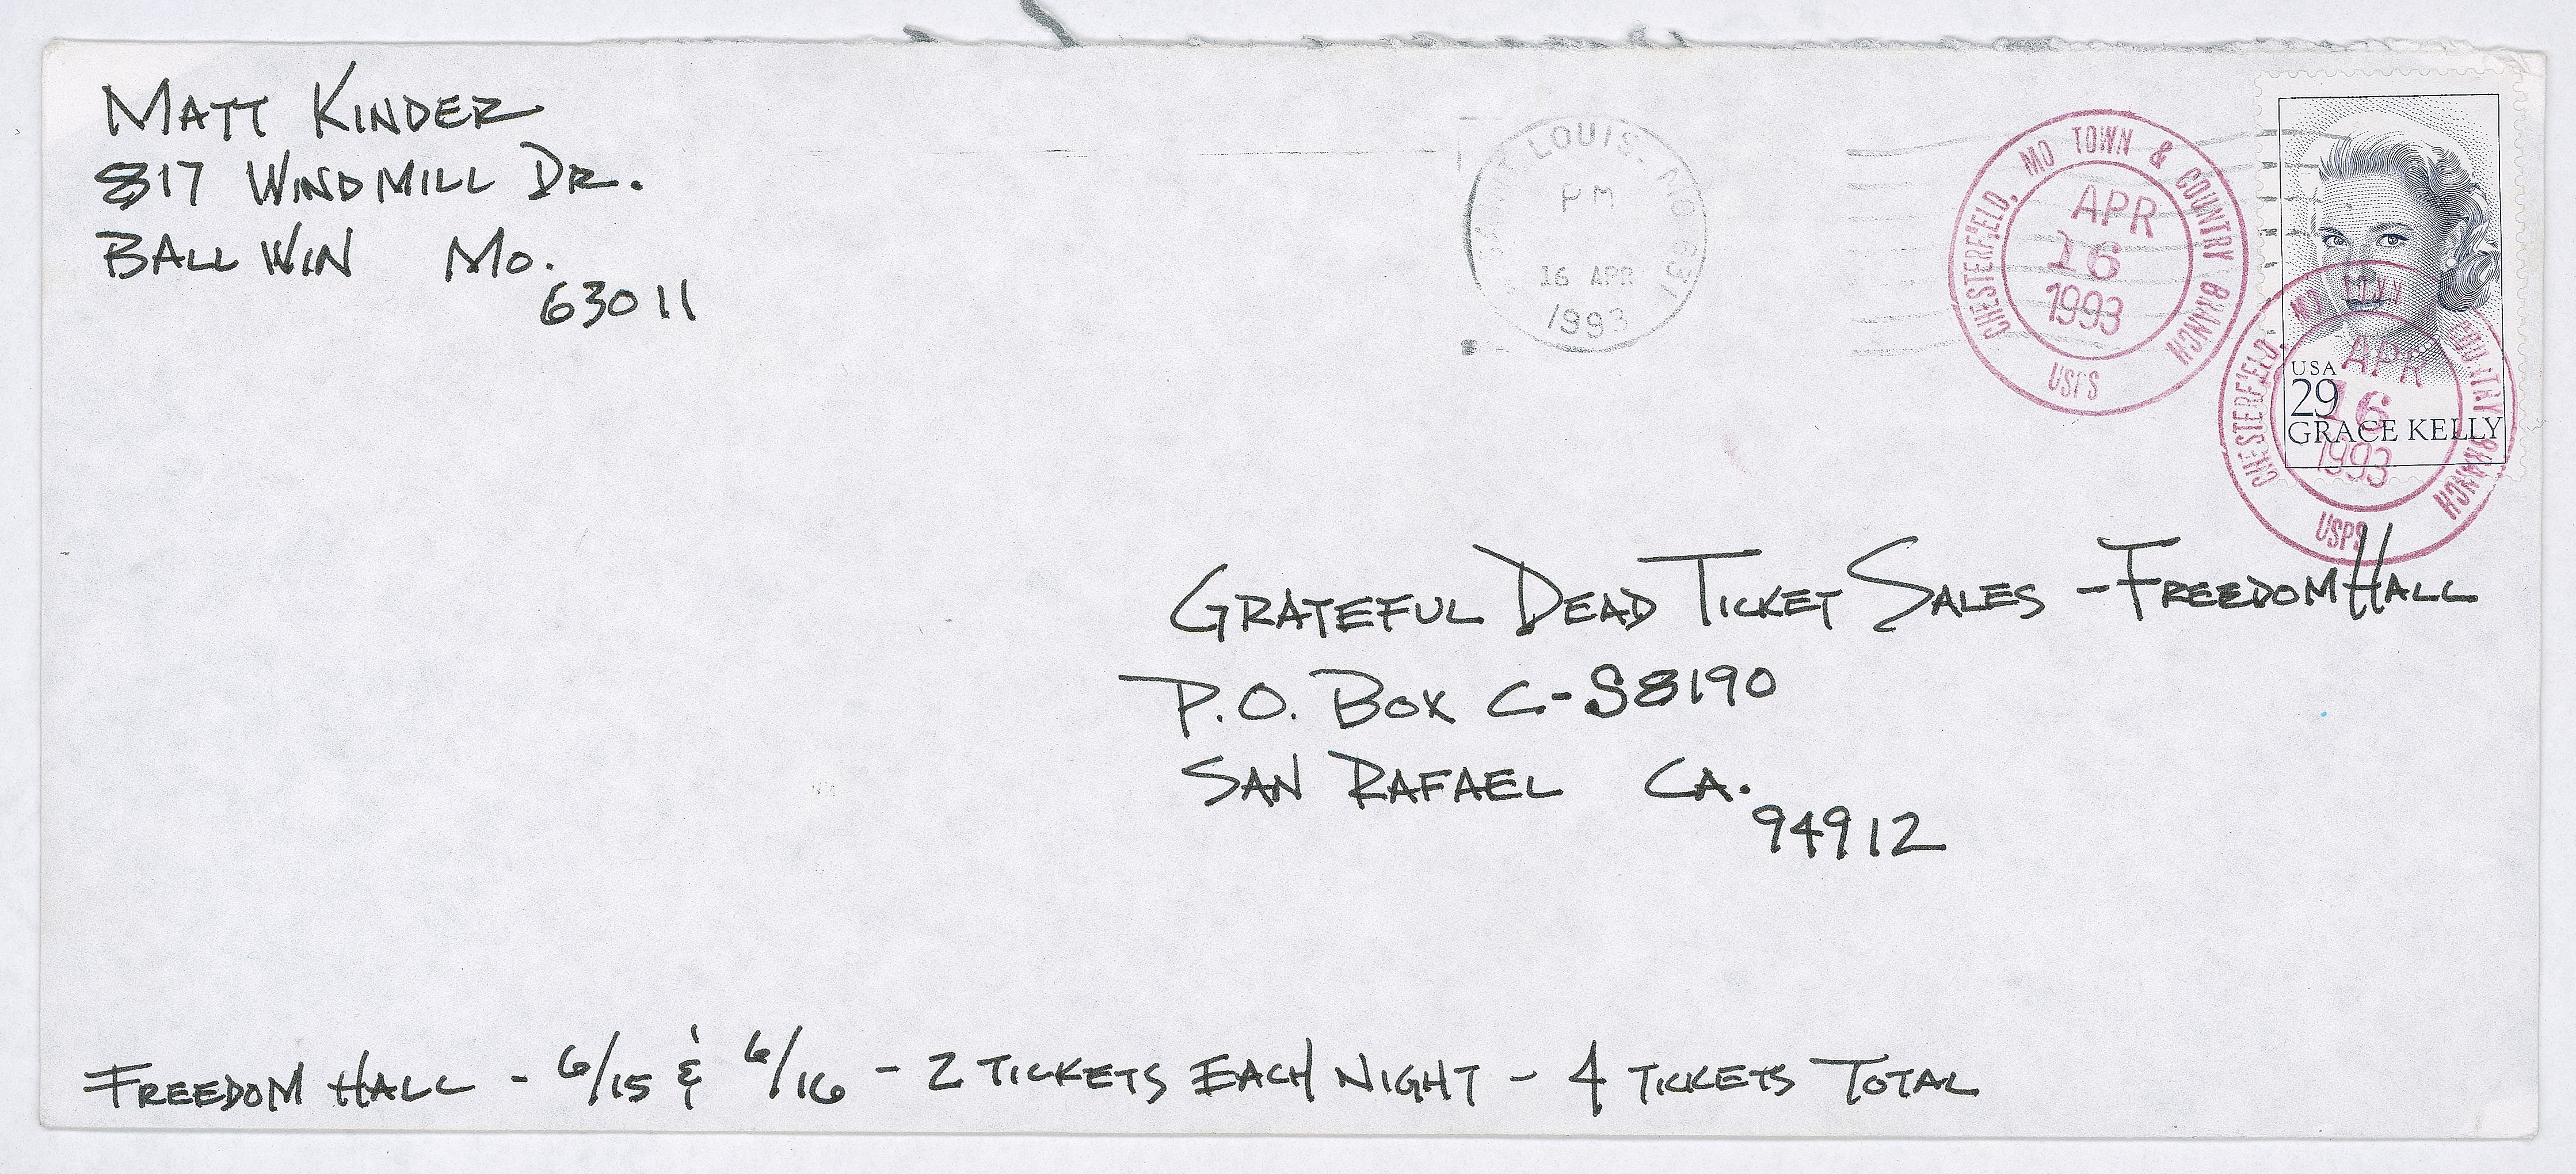 MATT KINDER
817 WINDMILL DR.
BALLWIN MO.
63011
SAINT LOUIS, MO 631
PM
16 APR
1993
CHESTERFIELD, MO TOWN & COUNTRY BRANCH
APR
16
1993
USPS
USA
29
GRACE KELLY
CHESTERFIELD, MO TOWN COUNTRY BRANCH
APR
16
1993
USPS
GRATEFUL DEAD TICKET SALES - FREEDOM HALL
P.O. BOX C-S8190
SAN RAFAEL CA.
94912
FREEDOM HALL - 6/15 & 6/16 - 2 TICKETS EACH NIGHT - 4 TICKETS TOTAL